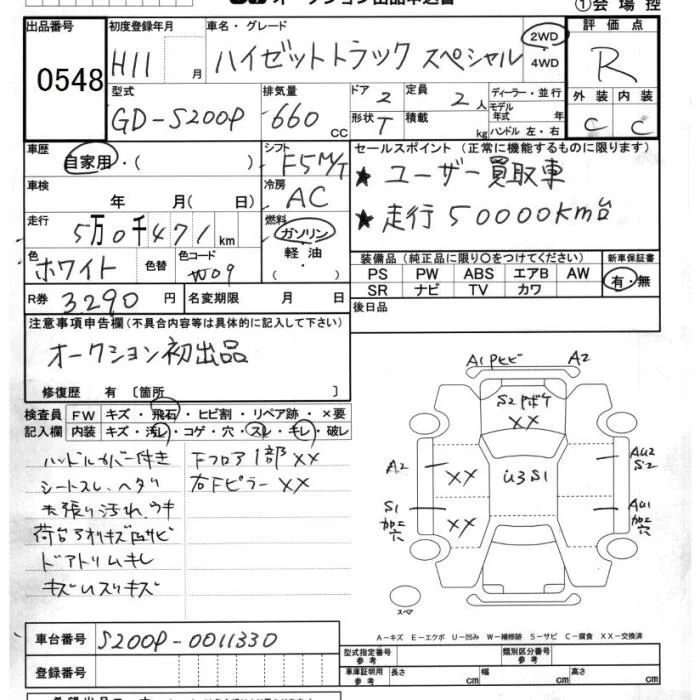 ①会場控
出品番号
0548
初度登録年月
H11 月
車名・グレード
ハイゼットトラック スペシャル
2WD
・
4WD
評価点
R
型式
GD-S200P
排気量
660 CC
ドア
2
定員
2人
形状
T
積載
kg
ディーラー・並行
モデル
年式 年
ハンドル 左・右
外装
C
内装
C
車歴
自家用・( )
シフト
F5M/T
セールスポイント (正常に機能するものに限ります)
★ ユーザー買取車
★ 走行50000km台
車検
年 月( 日)
冷房
AC
走行
5万0千471km
燃料
ガソリン
軽油
( )
色
ホワイト
色替
色コード
W09
R券
3290円
名変期限 月 日
装備品 (純正品に限り○をつけてください)
PS PW ABS エアB AW
SR ナビ TV カワ
新車保証書
有・無
後日品
注意事項申告欄 (不具合内容等は具体的に記入して下さい)
オークション初出品
修復歴 有 〔箇所 〕
検査員
記入欄
FW キズ・飛石・ヒビ割・リペア跡・×要
内装 キズ・汚レ・コゲ・穴・スレ・キレ・破レ
ハンドルカバー付き
シートスレ、ヘタリ
天張り汚れ、ウキ
荷台アオリキズ凹サビ
ドアトリムキレ
キズUスリキズ
Fフロア1部XX
右FピラーXX
A1PヒビA2
S2Pボケ
XX
A2
XX
U3S1
AU2
S2
S1
加工
穴
XX
AU1
加工
穴
スペア
A－キズ E－エクボ U－凹み W－補修跡 S－サビ C－腐食 XX－交換済
車台番号
S200P-0011330
登録番号
型式指定番号
参考
類別区分番号
参考
車庫証明用
参考
長さ
幅
高さ
cm